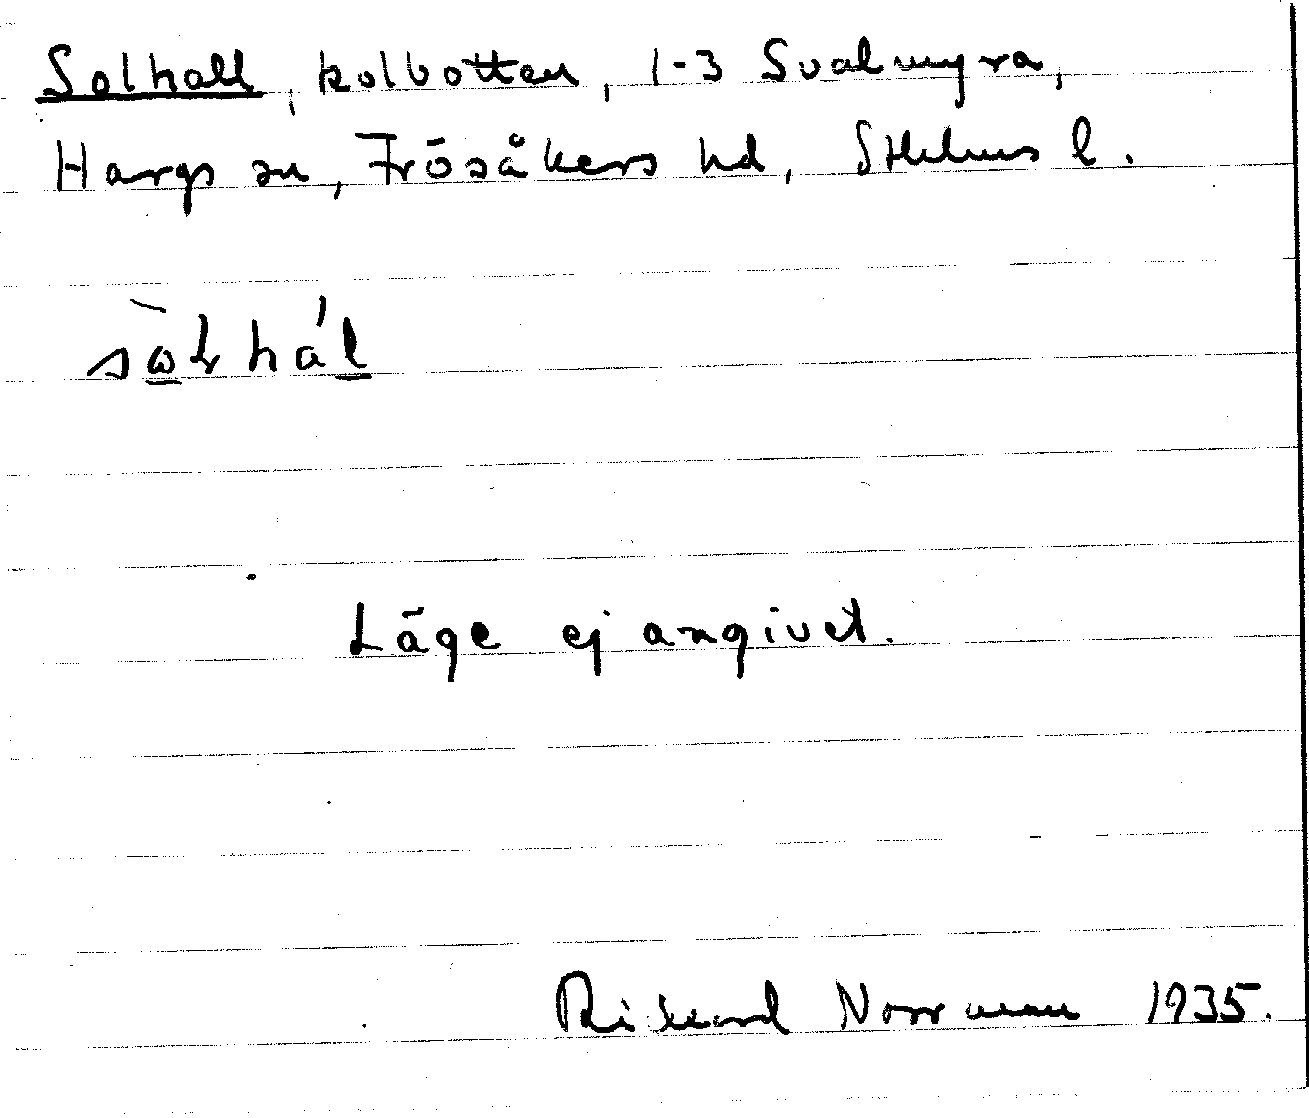 Solhall, kolbotten, 1-3 Svalmyra,
Hargs sn, Frösåkers hd, Sthlms l.
Läge ej angivet.
Rikard Norrman 1935.